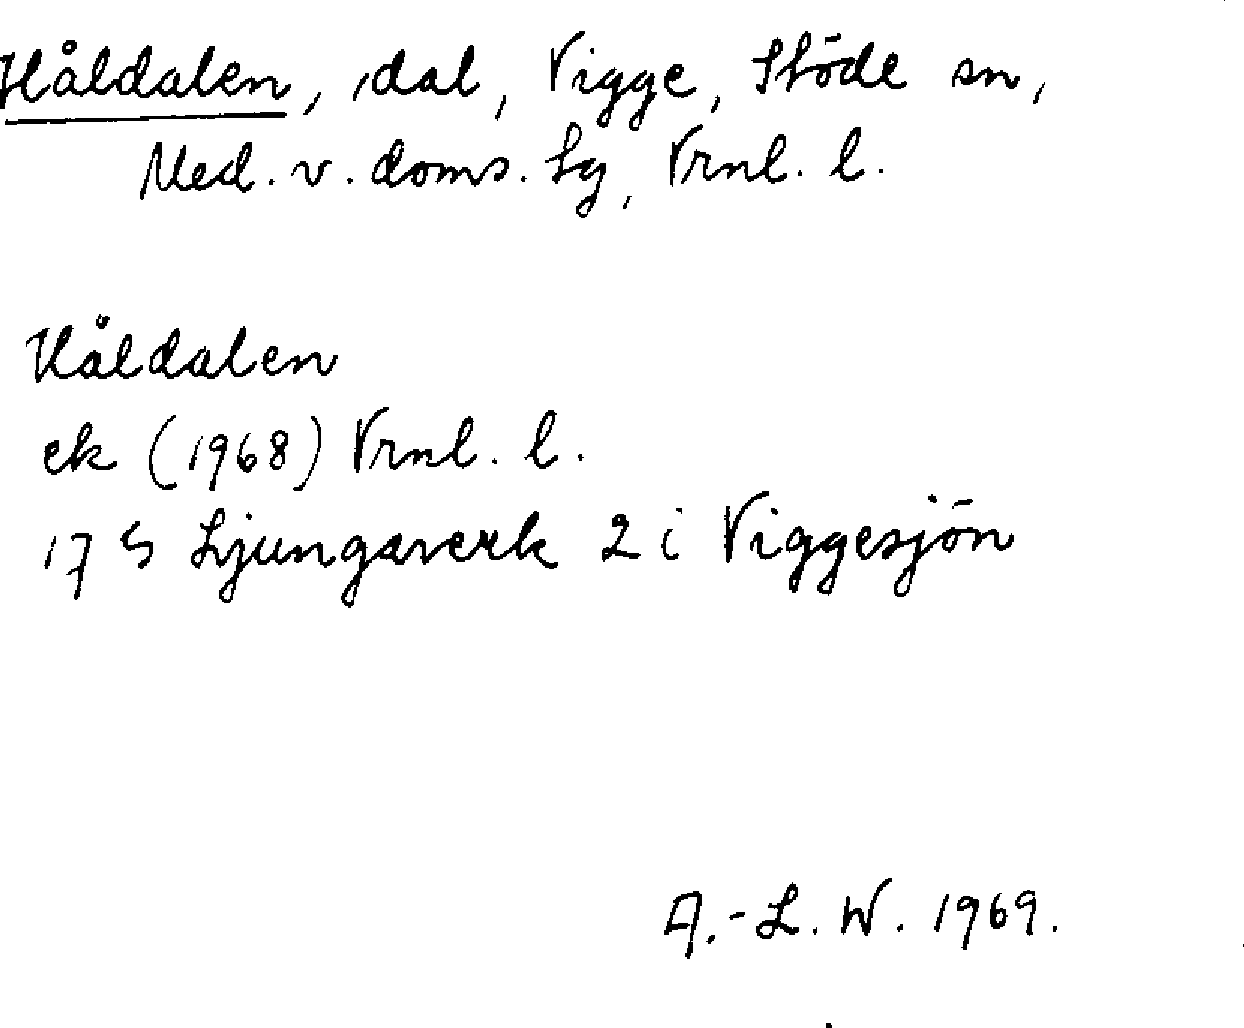 Håldalen, dal, Vigge, Stöde sn,
Med. v. doms. lg, Vrnl. l.
Håldalen
ek (1968) Vrnl. l.
17 G Ljungaverk 2 i Viggesjön
A.-L. W. 1969.